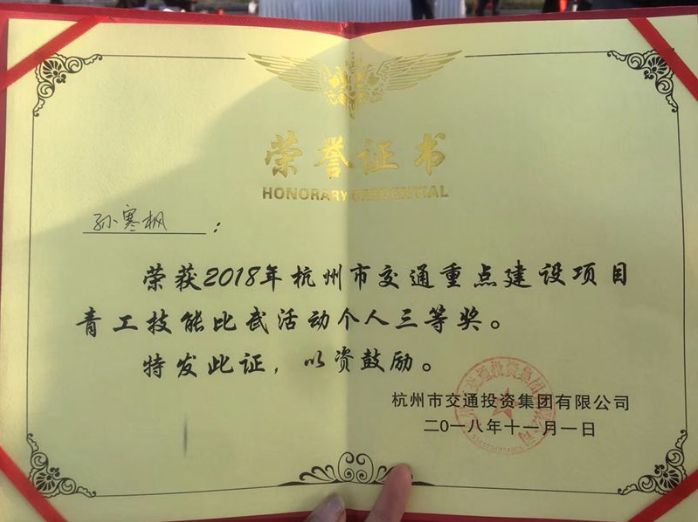 荣誉证书
HONORARY CREDENTIAL
孙寒枫：
荣获2018年杭州市交通重点建设项目
青工技能比武活动个人三等奖。
特发此证，以资鼓励。
杭州市交通投资集团有限公司
二〇一八年十一月一日